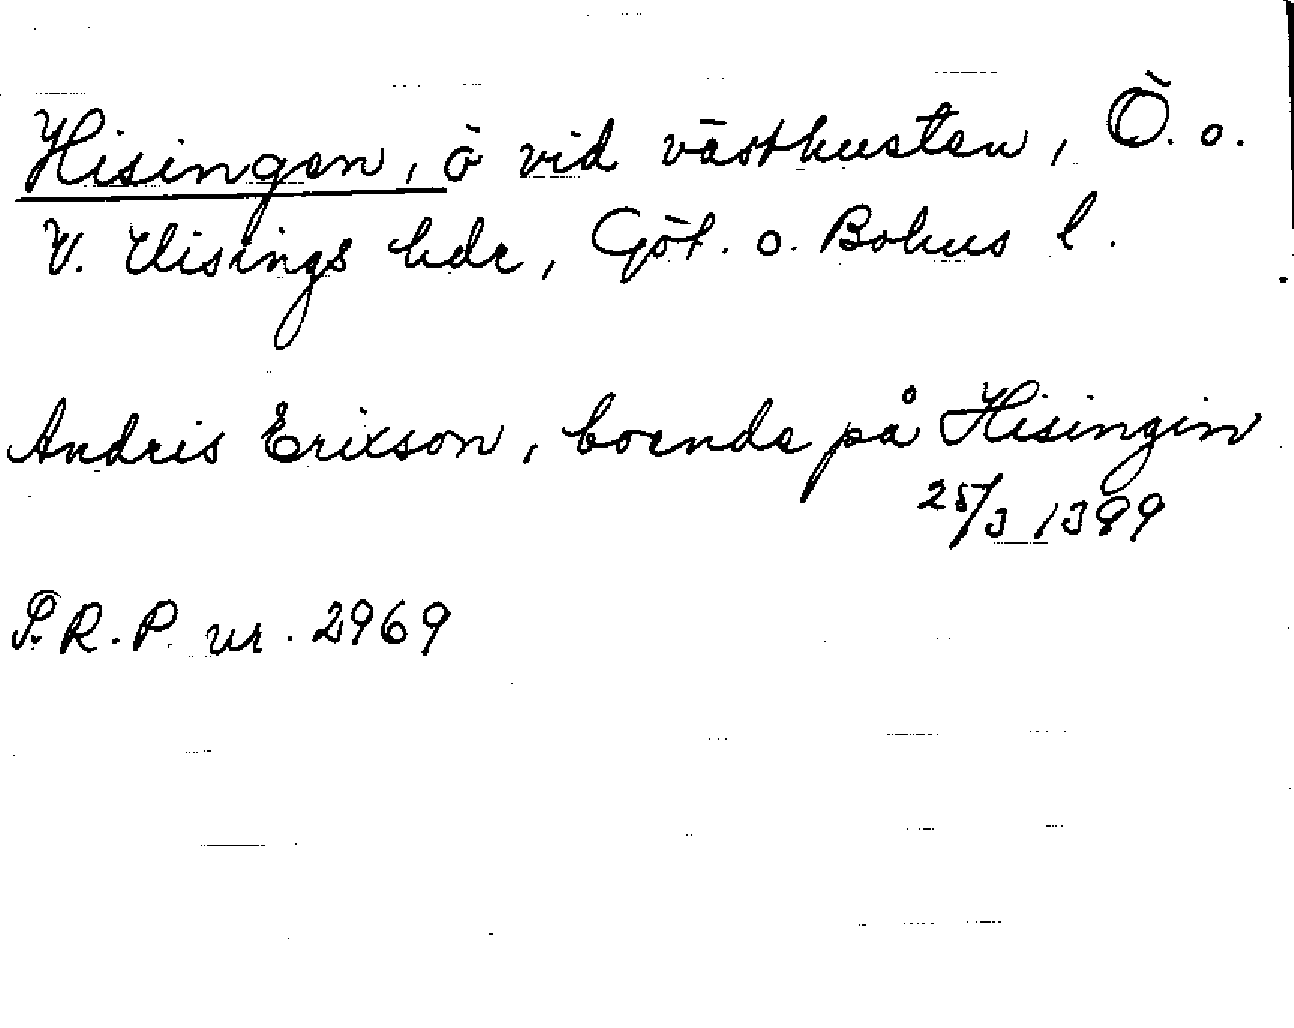 Hisingen, ö vid västkusten, Ö. o.
V. Hisings hdr, Göt. o. Bohus l.
Andris Erixson, boende på Hisingin
25/3 1399
S.R.P. nr. 2969